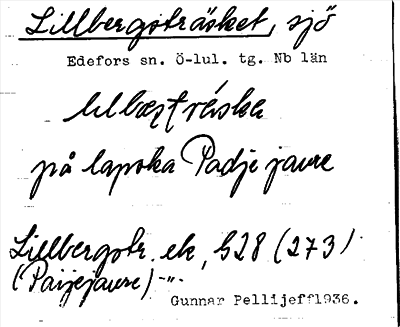 Lillbergsträsket, sjö
Edefors sn. Ö-lul. tg. Nb län
på lapska Padje jaure
Lillbergstr. ek, G28 (273)
(Paijejaure) -"-
Gunnar Pellijeff1936.